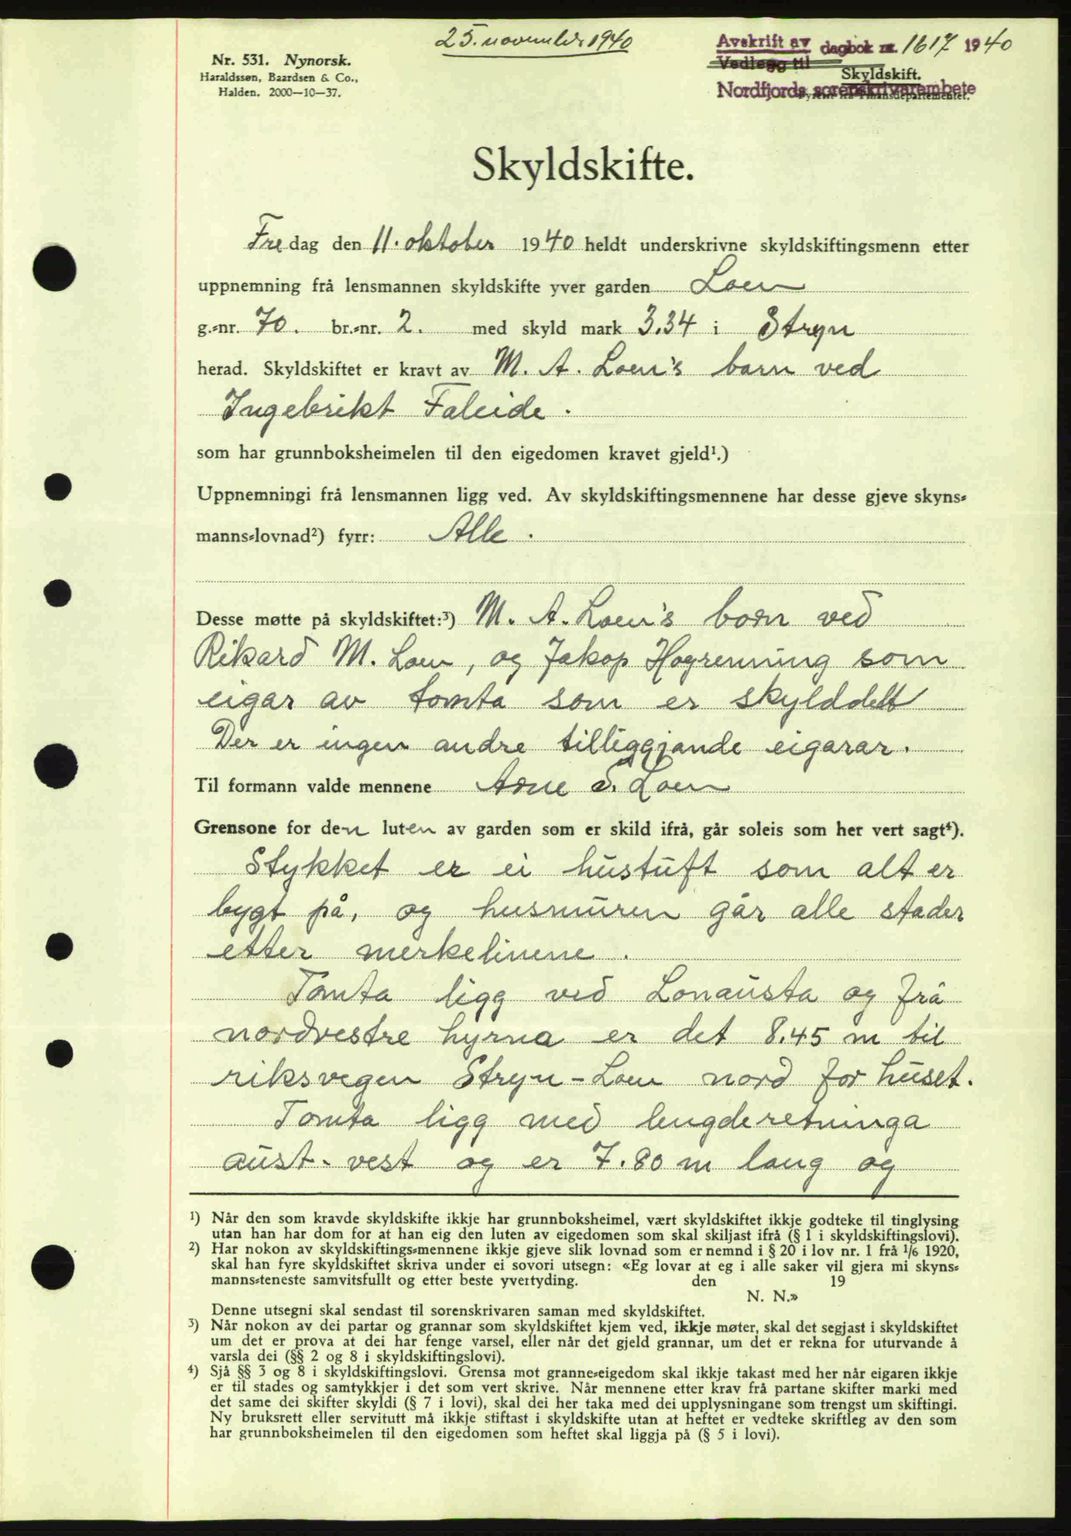 25. november 1940
Nr. 531. Nynorsk.
Haraldssøn, Baardsen & Co.,
Halden. 2000—10—37.
Avskrift av dagbok nr. 1617 1940
Vedlegg til
Skyldskift.
Nordfjords sorenskrivarembete
Skyldskifte.
Fredag den 11. oktober 1940 heldt underskrivne skyldskiftingsmenn etter
uppnemning frå lensmannen skyldskifte yver garden Loen
g.-nr. 70. br.-nr. 2. med skyld mark 3.34 i Stryn
herad. Skyldskiftet er kravt av M. A. Loen's barn ved
Ingebrikt Faleide.
som har grunnboksheimelen til den eigedomen kravet gjeld¹.)
Uppnemningi frå lensmannen ligg ved. Av skyldskiftingsmennene har desse gjeve skyns-
manns-lovnad²) fyrr: Alle.
Desse møtte på skyldskiftet:³) M. A. Loen's born ved
Rikard M. Loen, og Jakop Hogrenning som
eigar av tomta som er skylddelt
Der er ingen andre tilliggjande eigarar.
Til formann valde mennene Arne A. Loen
Grensone for den luten av garden som er skild ifrå, går soleis som her vert sagt⁴).
Stykket er ei hustuft som alt er
bygt på, og husmuren går alle stader
etter merkelinene.
Tomta ligg ved Lonausta og frå
nordvestre hyrna er det 8.45 m til
riksvegen Stryn - Loen nord for huset.
Tomta ligg med lengderetninga
aust - vest og er 7.80 m lang og
¹) Når den som kravde skyldskifte ikkje har grunnboksheimel, vært skyldskiftet ikkje godteke til tinglysing
utan han har dom for at han eig den luten av eigedomen som skal skiljast ifrå (§ 1 i skyldskiftingslovi).
²) Har nokon av skyldskiftings-mennene ikkje gjeve slik lovnad som er nemnd i § 20 i lov nr. 1 frå 1/6 1920,
skal han fyre skyldskiftet skriva under ei sovori utsegn: «Eg lovar at eg i alle saker vil gjera mi skyns-
manns-teneste samvitsfullt og etter beste yvertyding. den 19
N. N.»
Denne utsegni skal sendast til sorenskrivaren saman med skyldskiftet.
³) Når nokon av dei partar og grannar som skyldskiftet kjem ved, ikkje møter, skal det segjast i skyldskiftet
um det er prova at dei har fenge varsel, eller når det gjeld grannar, um det er rekna for uturvande å
varsla dei (§§ 2 og 8 i skyldskiftingslovi).
⁴) Sjå §§ 3 og 8 i skyldskiftingslovi. Grensa mot granne-eigedom skal ikkje takast med her når eigaren ikkje
er til stades og samtykkjer i det som vert skrive. Når mennene etter krav frå partane skifter marki med
det same dei skifter skyldi (§ 7 i lovi), skal dei her taka med dei upplysningane som trengst um skiftingi.
Ny bruksrett eller servitutt må ikkje stiftast i skyldskifte utan at heftet er vedteke skriftleg av den som
har grunnboksheimelen til den eigedomen som heftet skal liggja på (§ 5 i lovi).